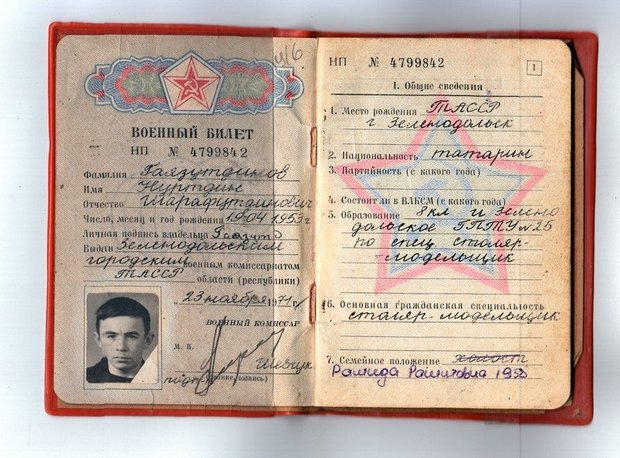 и/б
ВОЕННЫЙ БИЛЕТ
НП № 4799842
Фамилия Гаязутдинов
Имя Нуртдин
Отчество Шарафутдинович
Число, месяц и год рождения 19 04 1953 г
Личная подпись владельца
Выдан Зеленодольским
городским военным комиссариатом
ТАССР области (республики)
23 ноября 1971 г
ВОЕННЫЙ КОМИССАР
М. П.
Шевчук
подп (звание, подпись)
НП № 4799842
1
I. Общие сведения
1. Место рождения ТАССР
г. Зеленодольск
2. Национальность татарин
3. Партийность (с какого года)
4. Состоит ли в ВЛКСМ (с какого года)
5. Образование 8 кл и Зелено
дольское ГПТУ № 25
по спец столяр-
-модельщик
6. Основная гражданская специальность
столяр-модельщик
7. Семейное положение холост
Рашитовна 1953